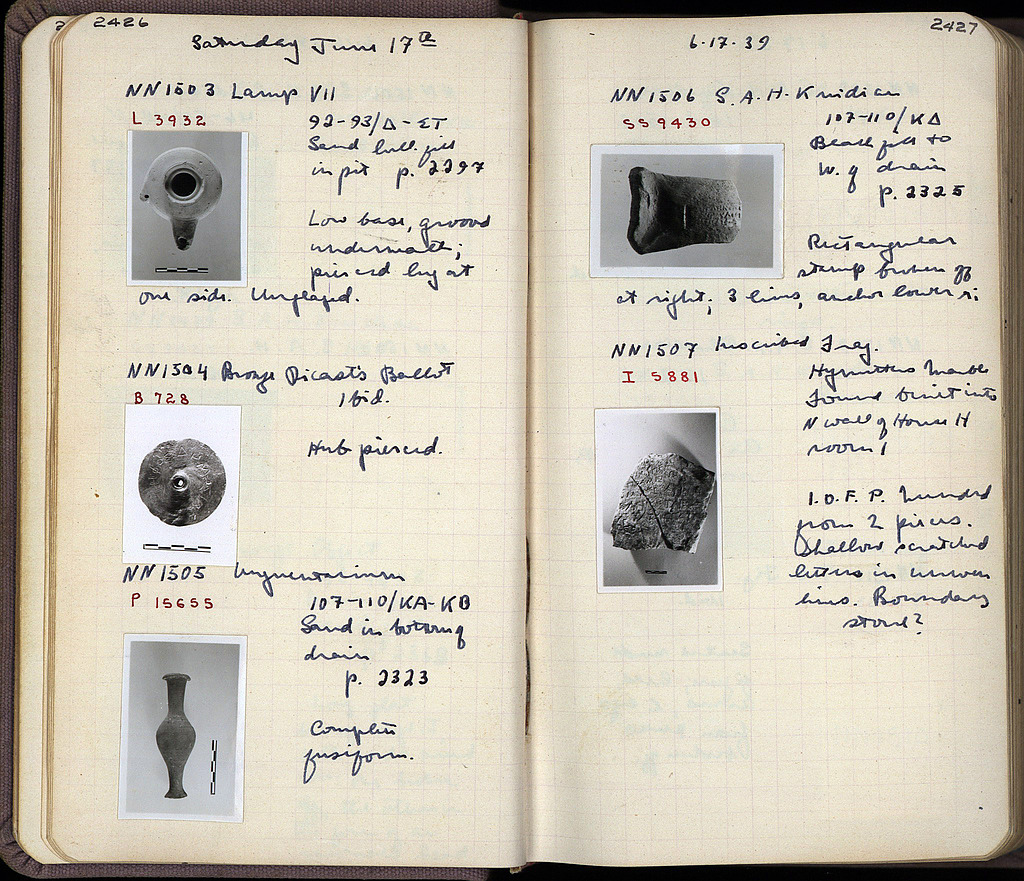 2426
Saturday June 17th
NN1503 Lamp VII
L 3932
92-93/Δ-ΣΤ
Sand fill
in pit p. 2297
Low base, groove
underneath;
pierced lug at
one side. Unglazed.
NN1504 Bronze Dicast's Ballot
B 728
Ibid.
Hub pierced.
NN1505 Unguentarium
P 15655
107-110/KA-KB
Sand in bottom of
drain
p. 2323
Complete
fusiform.
2427
6-17-39
NN1506 S.A.H. Knidian
SS 9430
107-110/ΚΔ
Black fill to
W. of drain
p. 2325
Rectangular
stamp broken off
at right; 3 lines, anchor lower ri
NN1507 Inscribed Frag.
I 5881
Hymettos Marble
Found built into
N wall of House H
room 1
I.O.F.P. Mended
from 2 pieces.
Shallow scratched
letters in uneven
lines. Boundary
stone?